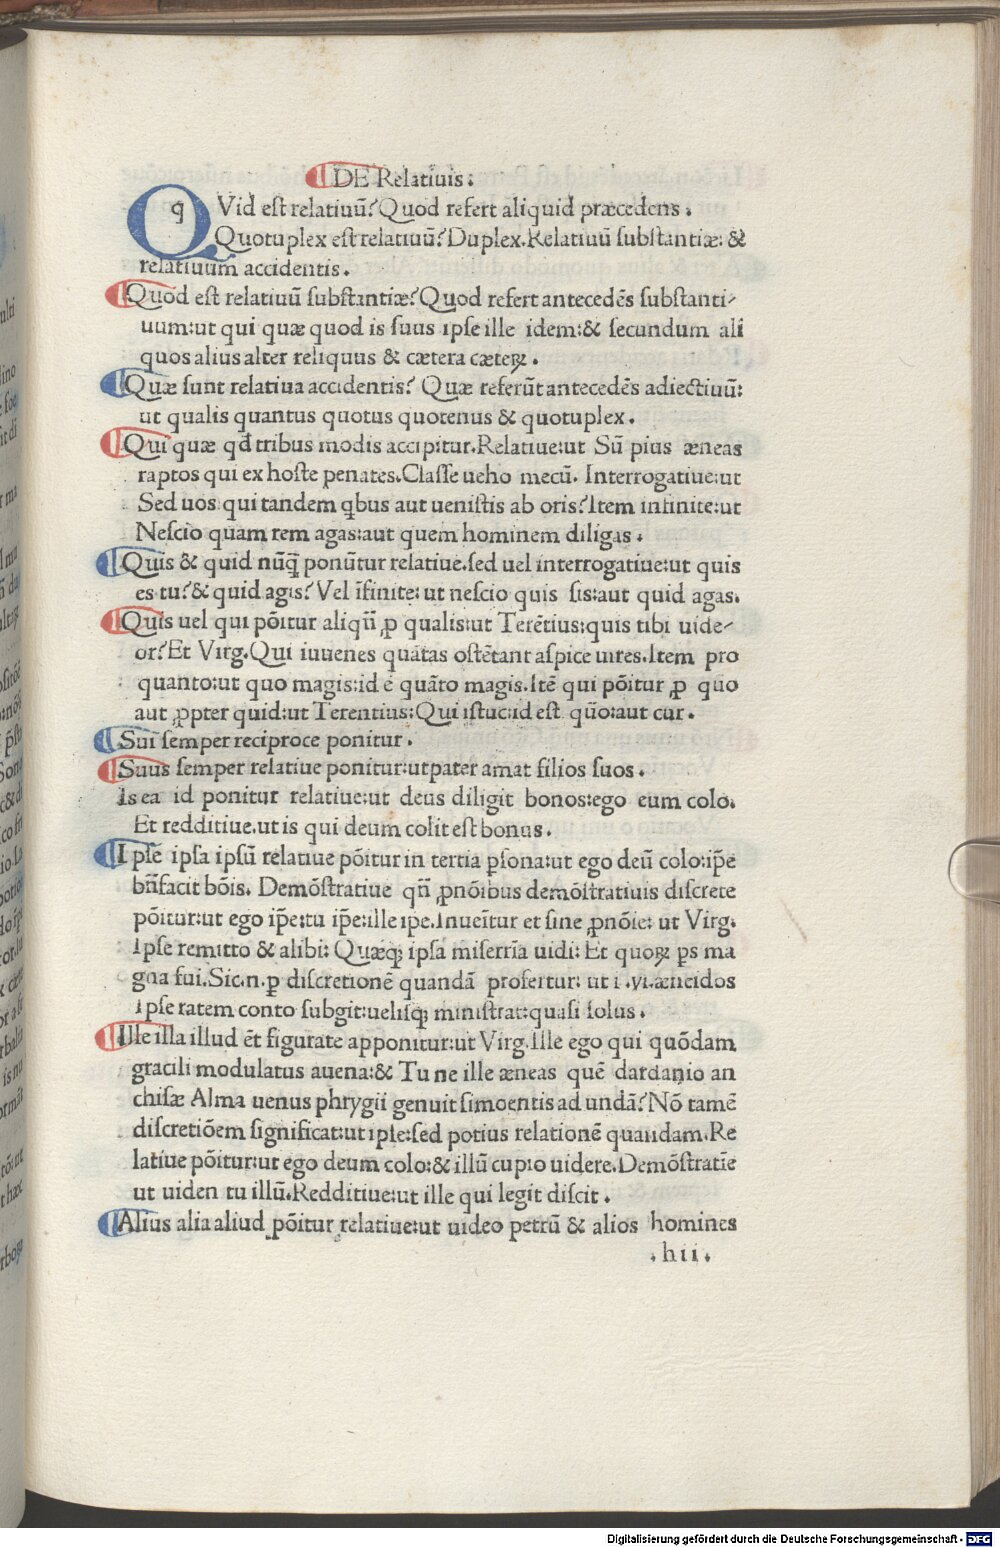 DE Relatiuis.
QVid est relatiuũ? Quod refert aliquid præcedens.
Quotuplex est relatiuũ? Duplex. Relatiuũ substantiæ: &
relatiuum accidentis.
Quod est relatiuũ substantiæ? Quod refert antecedẽs substanti-
uum: ut qui quæ quod is suus ipse ille idem: & secundum ali
quos alius alter reliquus & cætera cæteꝝ.
Quæ sunt relatiua accidentis? Quæ referũt antecedẽs adiectiuũ:
ut qualis quantus quotus quotenus & quotuplex.
Qui quæ qđ tribus modis accipitur. Relatiue: ut Sũ pius æneas
raptos qui ex hoste penates. Classe ueho mecũ. Interrogatiue: ut
Sed uos qui tandem qbus aut uenistis ab oris? Item infinite: ut
Nescio quam rem agas: aut quem hominem diligas.
Quis & quid nũq̃ ponũtur relatiue. sed uel interrogatiue: ut quis
es tu? & quid agis? Vel ĩfinite: ut nescio quis sis: aut quid agas.
Quis uel qui põitur aliqñ ꝓ qualis: ut Terẽtius: quis tibi uide-
or? Et Virg. Qui iuuenes quãtas ostẽtant aspice uires. Item pro
quanto: ut quo magis: id ẽ quãto magis. Itẽ qui põitur ꝓ quo
aut ꝓpter quid: ut Terentius: Qui istuc: id est quõ: aut cur.
Sui semper reciproce ponitur.
Suus semper relatiue ponitur: ut pater amat filios suos.
Is ea id ponitur relatiue: ut deus diligit bonos: ego eum colo.
Et redditiue. ut is qui deum colit est bonus.
Ipse ipsa ipsũ relatiue põitur in tertia ꝑsona: ut ego deũ colo: ip̃e
bñfacit bõis. Demõstratiue qñ ꝓnõibus demõstratiuis discrete
põitur: ut ego ip̃e: tu ip̃e: ille ip̃e. Inueĩtur et sine ꝓnõie: ut Virg.
Ipse remitto & alibi: Quæq; ipsa miserrĩa uidi: Et quoꝝ ꝑs ma
gna fui. Sic .n. ꝑ discretionẽ quandã profertur: ut i .vi. æneidos
Ipse ratem conto subgit: uelisq; ministrat: quasi solus.
Ille illa illud ẽt figurate apponitur: ut Virg. Ille ego qui quõdam
gracili modulatus auena: & Tu ne ille æneas quẽ dardanio an
chisæ Alma uenus phrygii genuit simoentis ad undã? Nõ tamẽ
discretiõem significat: ut ipse: sed potius relationẽ quandam. Re
latiue põitur: ut ego deum colo: & illũ cupio uidere. Demõstratĩe
ut uiden tu illũ. Redditiue: ut ille qui legit discit.
Alius alia aliud põitur relatiue: ut uideo petrũ & alios homines
.hii.
Digitalisierung gefördert durch die Deutsche Forschungsgemeinschaft - DFG